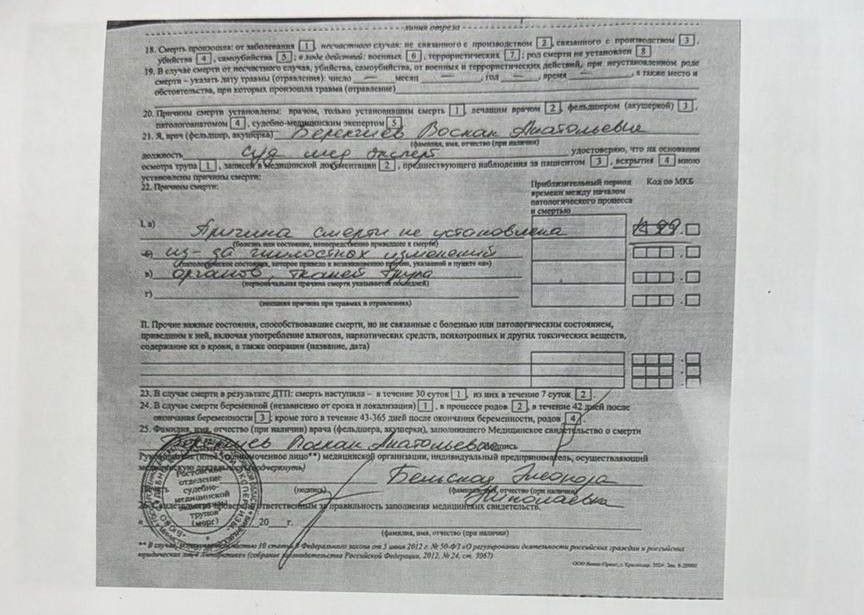 линия отреза
18. Смерть произошла: от заболевания 1 , несчастного случая: не связанного с производством 2 , связанного с производством 3 ,
убийства 4 , самоубийства 5 ; в ходе действий: военных 6 , террористических 7 ; род смерти не установлен 8
19. В случае смерти от несчастного случая, убийства, самоубийства, от военных и террористических действий, при неустановленном роде
смерти – указать дату травмы (отравления): число — месяц — , год — , время — , а также место и
обстоятельства, при которых произошла травма (отравление)
20. Причины смерти установлены: врачом, только установившим смерть 1 , лечащим врачом 2 , фельдшером (акушеркой) 3 ,
патологоанатомом 4 , судебно-медицинским экспертом 5
21. Я, врач (фельдшер, акушерка) Воскан Анатольевич
(фамилия, имя, отчество (при наличии)
должность суд мед эксперт удостоверяю, что на основании
осмотра трупа 1 , записей в медицинской документации 2 , предшествующего наблюдения за пациентом 3 , вскрытия 4 мною
установлены причины смерти:
22. Причины смерти:
Приблизительный период времени между началом патологического процесса и смертью
Код по МКБ
I. а) Причина смерти не установлена R99
(болезнь или состояние, непосредственно приведшее к смерти)
из-за гнилостных изменений
(патологическое состояние, которое привело к возникновению причины, указанной в пункте «а»)
в) органов, тканей трупа
(первоначальная причина смерти указывается последней)
г)
(внешняя причина при травмах и отравлениях)
II. Прочие важные состояния, способствовавшие смерти, но не связанные с болезнью или патологическим состоянием,
приведшим к ней, включая употребление алкоголя, наркотических средств, психотропных и других токсических веществ,
содержание их в крови, а также операции (название, дата)
23. В случае смерти в результате ДТП: смерть наступила – в течение 30 суток 1 , из них в течение 7 суток 2 .
24. В случае смерти беременной (независимо от срока и локализации) 1 , в процессе родов 2 , в течение 42 дней после
окончания беременности 3 ; кроме того в течение 43-365 дней после окончания беременности, родов 4 .
25. Фамилия, имя, отчество (при наличии) врача (фельдшера, акушерки), заполнившего Медицинское свидетельство о смерти
Воскан Анатольевич подпись
Руководитель (иное уполномоченное лицо**) медицинской организации, индивидуальный предприниматель, осуществляющий
медицинскую деятельность (подчеркнуть)
Ростовское отделение судебно-медицинской экспертизы трупов (морг)
Бельская Элеонора
(подпись) (фамилия, имя, отчество (при наличии)
Николаевна
26. Свидетельство проверено ответственным за правильность заполнения медицинских свидетельств.
« 20 г.
(фамилия, имя, отчество (при наличии)
** В случае, установленном частью 10 статьи 9 Федерального закона от 5 июня 2012 г. № 50-ФЗ «О регулировании деятельности российских граждан и российских
юридических лиц в Антарктике» (собрание законодательства Российской Федерации, 2012, № 24, ст. 3067)